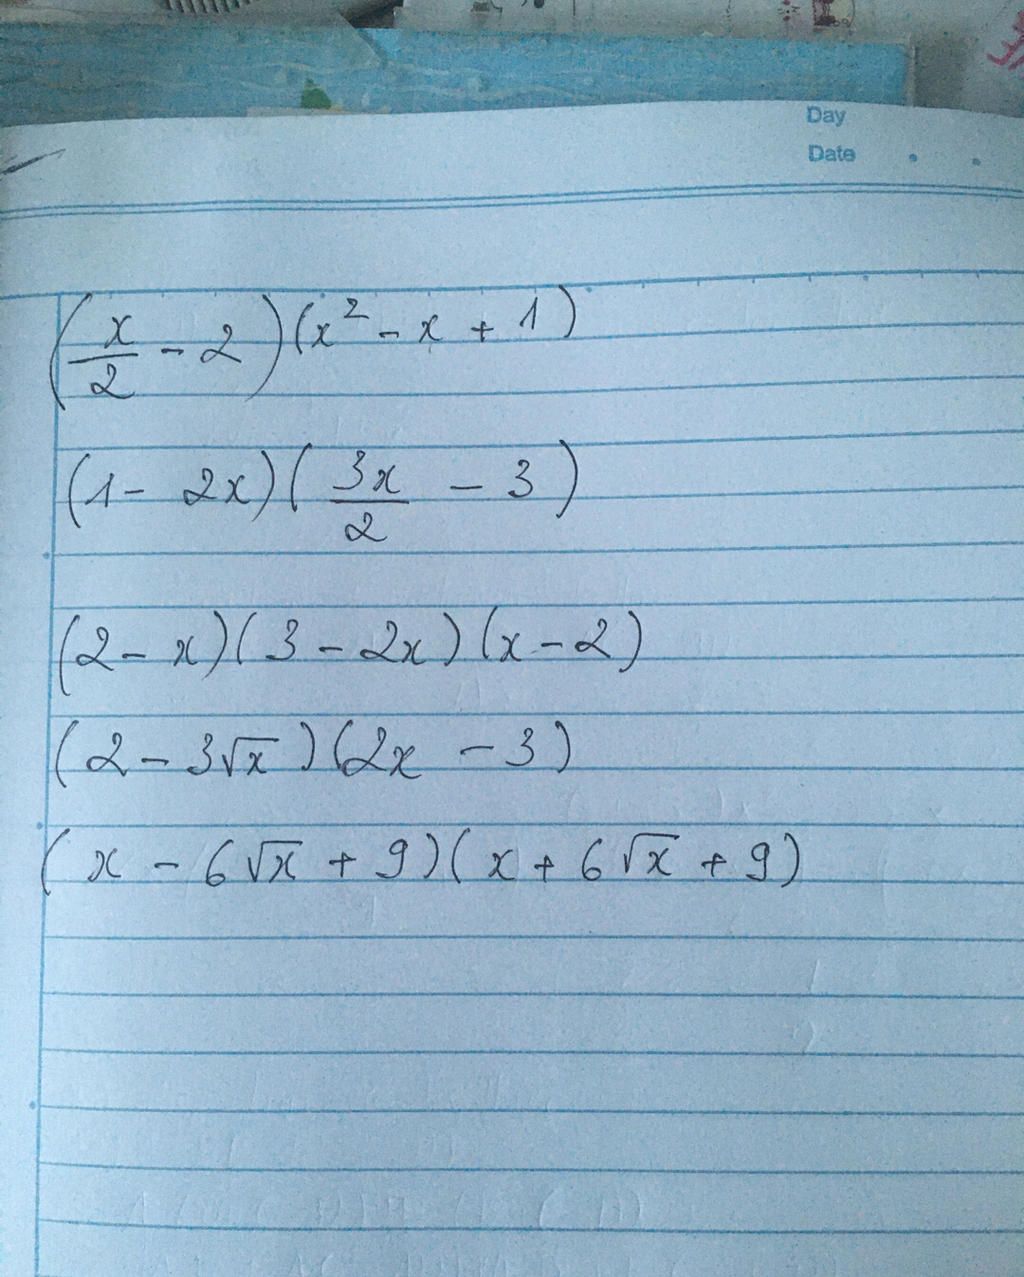 Day
Date
(x/2 - 2)(x² - x + 1)
(1 - 2x)(3x/2 - 3)
(2 - x)(3 - 2x)(x - 2)
(2 - 3√x)(2x - 3)
(x - 6√x + 9)(x + 6√x + 9)